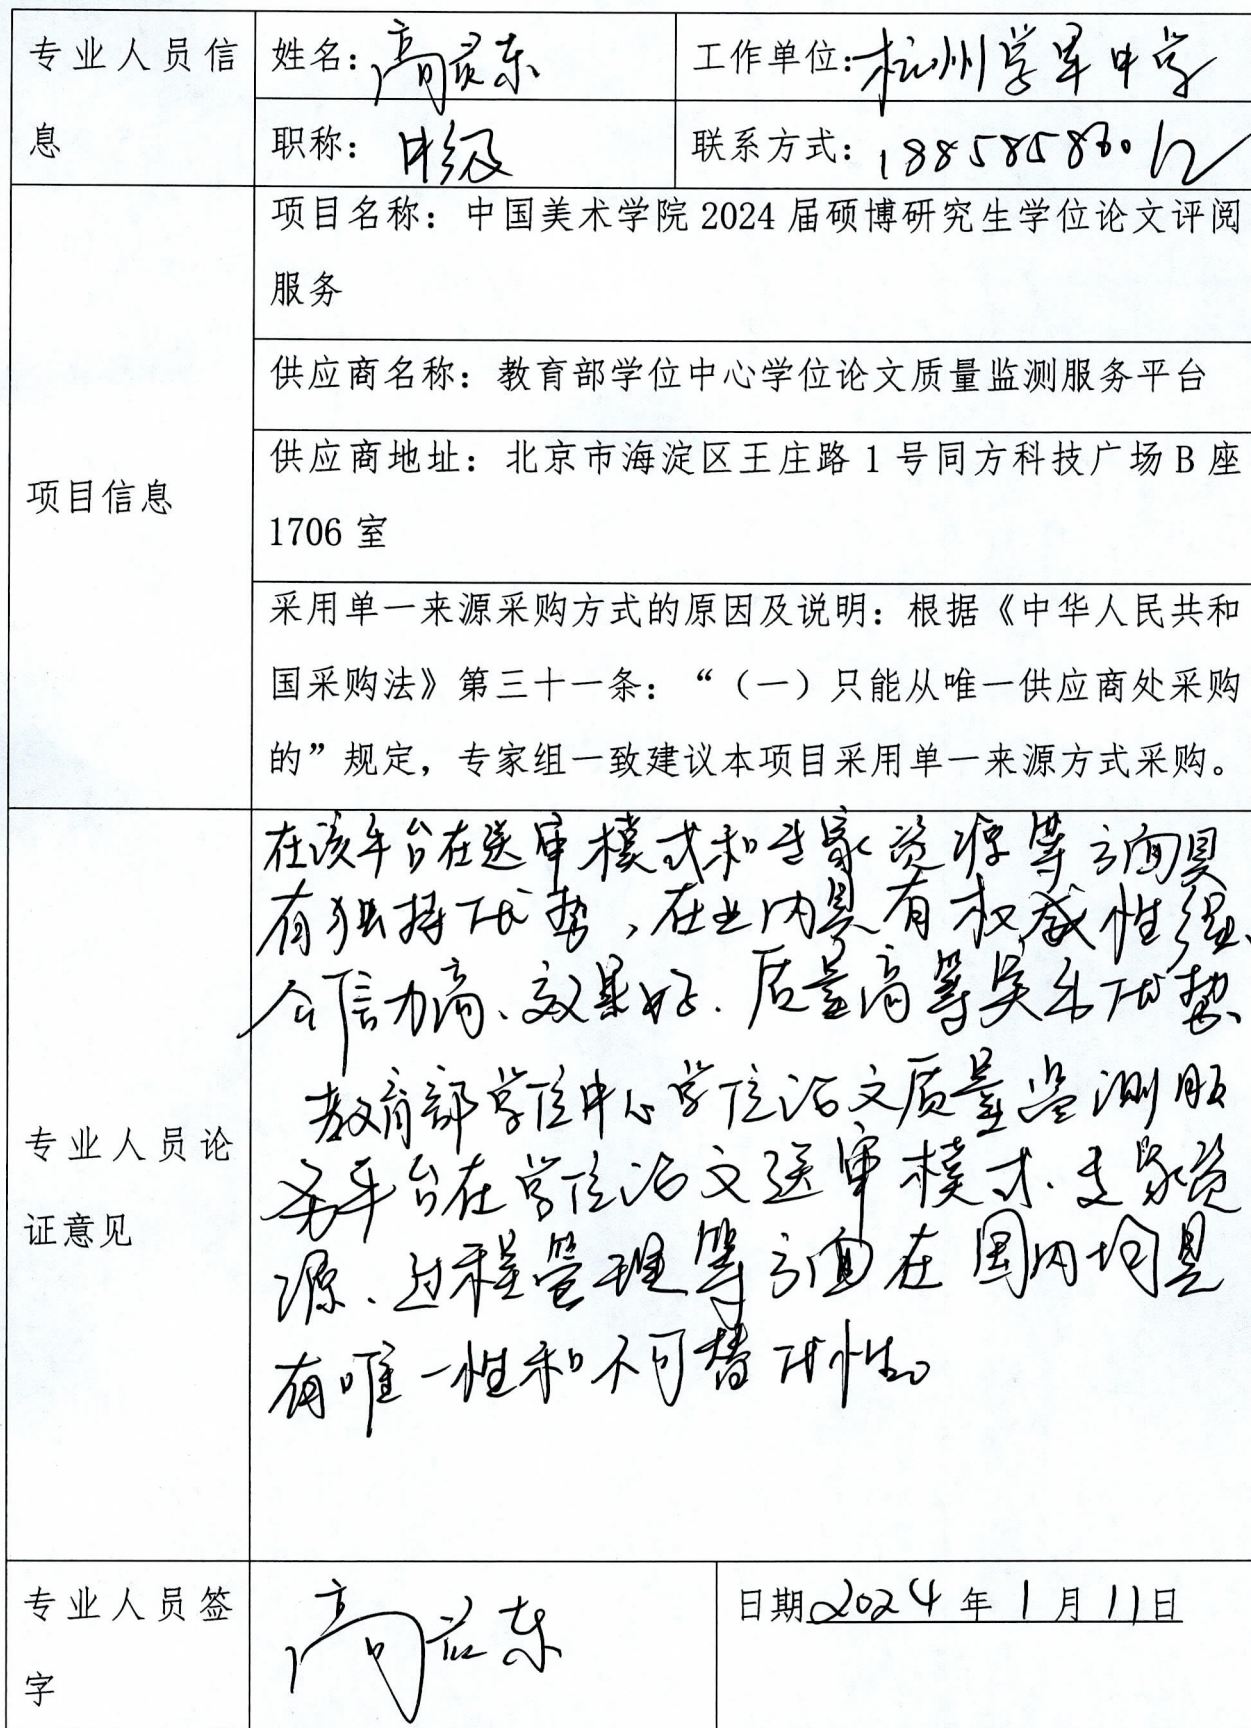 专业人员信息
姓名：高
工作单位：杭州学军中学
职称：中级
联系方式：
项目信息
项目名称：中国美术学院 2024 届硕博研究生学位论文评阅
服务
供应商名称：教育部学位中心学位论文质量监测服务平台
供应商地址：北京市海淀区王庄路 1 号同方科技广场 B 座
1706 室
采用单一来源采购方式的原因及说明：根据《中华人民共和
国采购法》第三十一条：“（一）只能从唯一供应商处采购
的”规定，专家组一致建议本项目采用单一来源方式采购。
专业人员论
证意见
在该平台在送审模式和专家资源等方面具
有独特优势，在业内具有权威性强、
公信力高、效果好、质量高等 优势
教育部学位中心学位论文质量监测服
务平台在学位论文送审模式、专家资
源、过程管理等方面在国内均具
有唯一性和不可替代性。
专业人员签
字
高 东
日期2024 年 1 月 11日